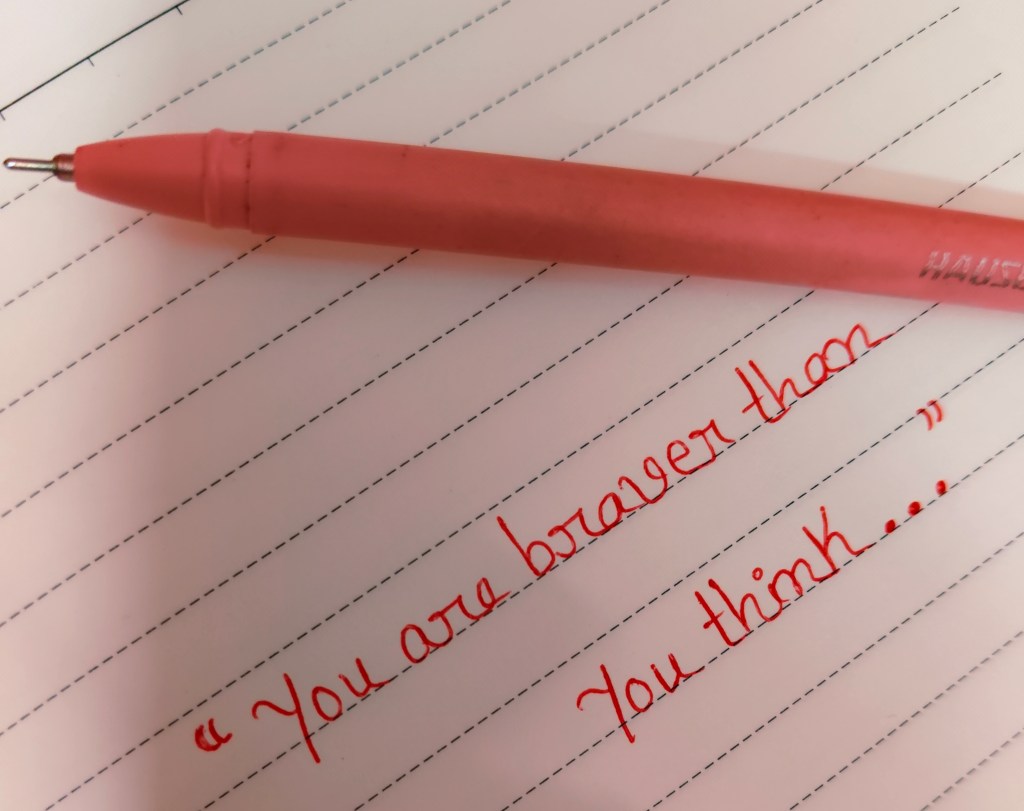 HAUSE
“ You are braver than
You think... ”